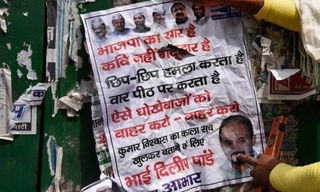 भाजपा का यार है
कवि नहीं गद्दार है
छिप-छिप हमला करता है
वार पीठ पर करता है
ऐसे धोखेबाजों को
बाहर करो - बाहर करो
कुमार विश्वास का काला सच
खुलकर बताने के लिए
भाई दिलीप पांडे
आभार